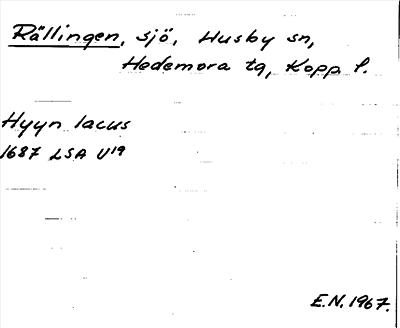 Rällingen, sjö, Husby sn,
Hedemora tg, Kopp l.
Hyyn lacus
1687 LSA U19
E.N. 1967.